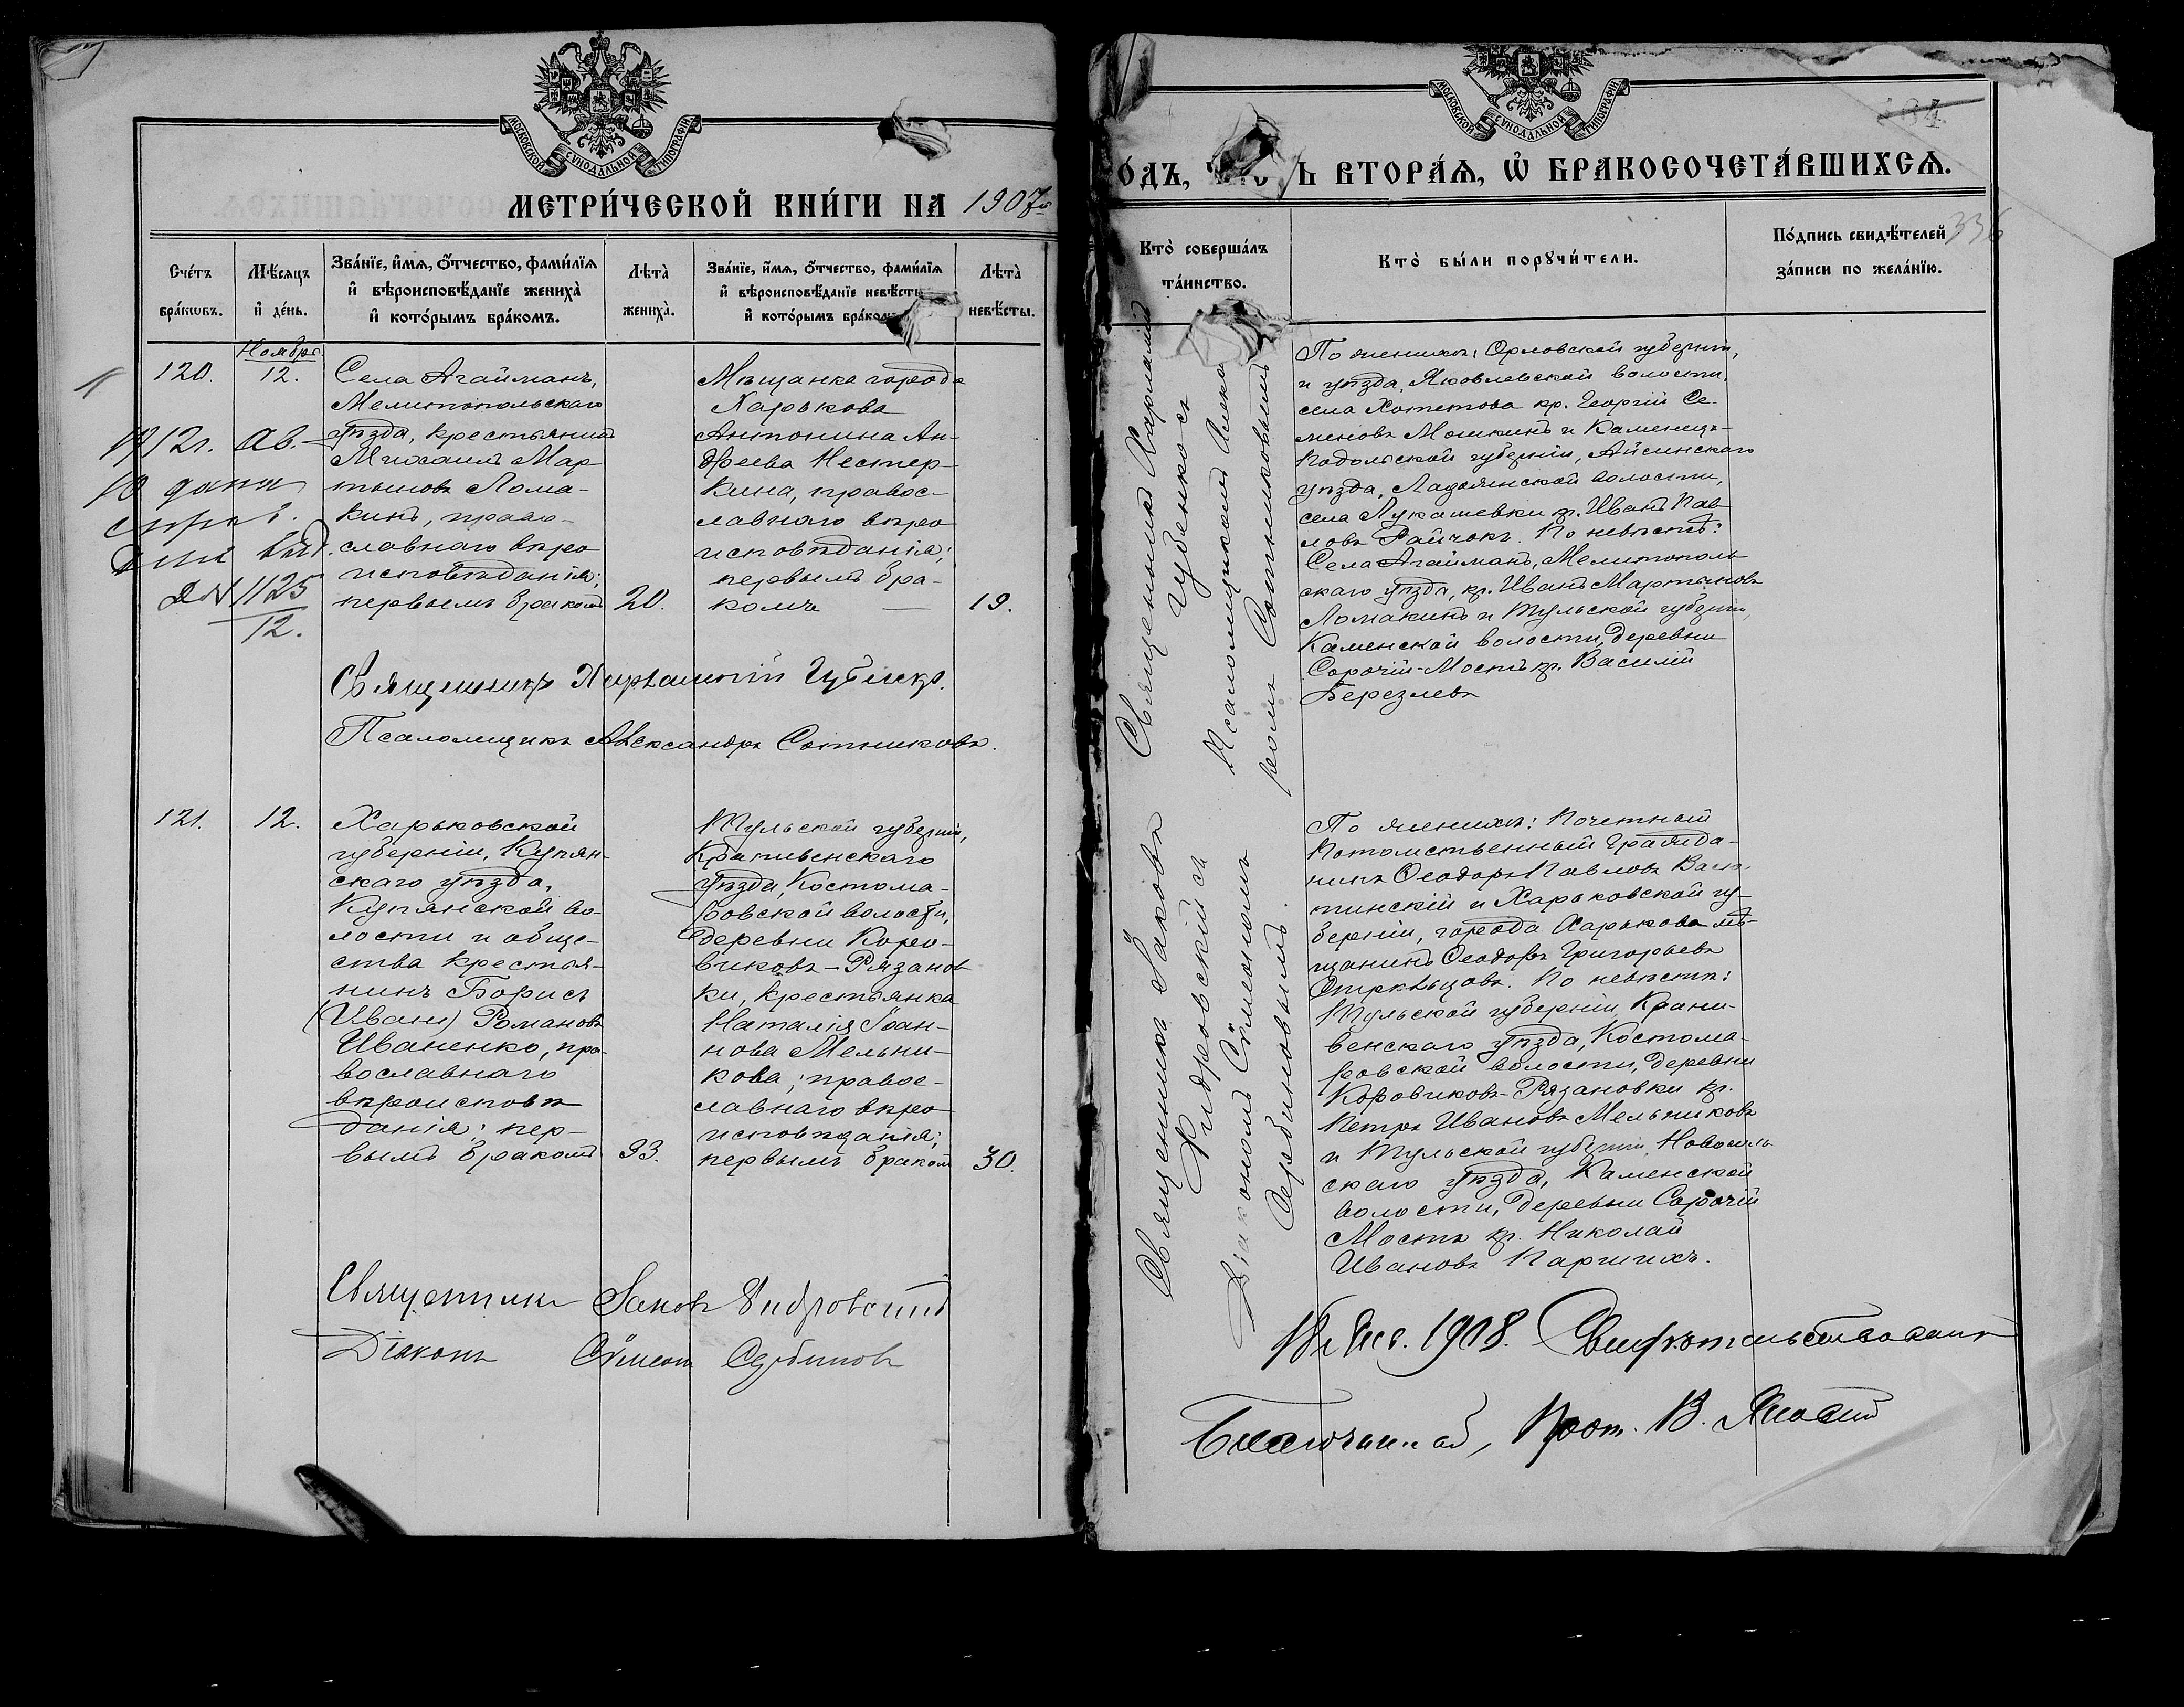 МОСКОВСКОЙ СУНОДАЛЬНОЙ ТИПОГРАФІИ
МЕТРИ́ЧЕСКОЙ КНИ́ГИ НА 1907 г.
Сче́тъ бра́кѡвъ.
Мѣ́сяцъ и҆ де́нь.
Зва́нїе, и҆́мѧ, ѻ҆́тчество, фами́лїѧ
и҆ вѣроисповѣ́данїе жениха̀
и҆ кото́рымъ бра́комъ.
Лѣта̀ жениха̀.
Зва́нїе, и҆́мѧ, ѻ҆́тчество, фами́лїѧ
и҆ вѣроисповѣ́данїе невѣ́сты
и҆ кото́рымъ бра́комъ
Лѣта̀ невѣ́сты.
120.
Ноябрь
12.
Села Агайманъ,
Мелитопольскаго
уѣзда, крестьянинъ
Михаилъ Мар
тыновъ Лома-
кинъ, право-
славнаго вѣро
исповѣданія;
первымъ бракомъ
20.
Мѣщанка города
Харькова
Антонина Ан-
дреева Нестер-
кина, правос-
лавнаго вѣро
исповѣданія;
первымъ бра-
комъ —
19.
1912 г. Ав.
10 дана
выд.
№ 1125
12.
Священникъ Харлампій Губенко.
Псаломщикъ Александръ Сотниковъ.
121.
12.
Харьковской
губерніи, Купян-
скаго уѣзда,
Купянской во-
лости и обще-
ства крестья-
нинъ Борисъ
(Иванъ) Романовъ
Иваненко, пра-
вославнаго
вѣроисповѣ
данія; пер-
вымъ бракомъ
33.
Тульской губерніи,
Крапивенскаго
уѣзда, Костома-
ровской волости,
деревни Коро-
виковъ-Рязанов
ки, крестьянка
Наталія Іоан-
нова Мельни-
кова; правос-
лавнаго вѣро
исповѣданія;
первымъ бракомъ
30.
Священникъ Іаковъ
Діаконъ Сѵмеонъ Сербиновъ
МОСКОВСКОЙ СУНОДАЛЬНОЙ ТИПОГРАФІИ
184
О́ДЪ, Ь ВТОРА́Ѧ, Ѡ҆ БРАКОСОЧЕТА́ВШИХСѦ.
336
Кто̀ соверша́лъ
та́инство.
Кто̀ бы́ли порꙋчи́тели.
По́дпись свидѣ́телей
за́писи по жела́нїю.
Священникъ Харлампій
Губенко съ
Псаломщикомъ Алекса
Сотниковымъ
По женихѣ: Орловской губерніи,
и уѣзда, Яковлевской волости,
села Хотетова кр. Георгій Се-
меновъ Мошкинъ и Каменецъ-
Подольской губерніи, Айсинскаго
уѣзда, Ладыжинской волости,
села Лукашевки кр. Иванъ Пав
ловъ Райчокъ. По невѣстѣ:
Села Агайманъ, Мелитополь
скаго уѣзда, кр. Иванъ Мартыновъ
Ломакинъ и Тульской губерніи,
Каменской волости, деревни
Сорочій-Мостъ кр. Василій
Березлевъ
Священникъ Іаковъ
Діакономъ Сѵмеономъ
Сербиновымъ.
По женихѣ: Почетный
Потомственный Гражда-
нинъ Ѳеодоръ Павловъ
тинскій и Харьковской гу-
берніи, города Харькова мѣ-
щанинъ Ѳеодоръ Григорьевъ
Отрѣльцовъ. По невѣстѣ:
Тульской губерніи, Крапи-
венскаго уѣзда, Костома-
ровской волости, деревни
Коровиковъ-Рязановки кр.
Петръ Ивановъ Мельниковъ
и Тульской губерніи, Новосиль
скаго уѣзда, Каменской
волости, деревни Сорочій
Мостъ кр. Николай
Ивановъ Паршихъ.
1908. Свидѣтельствовалъ
Благочинный, Прот. В.